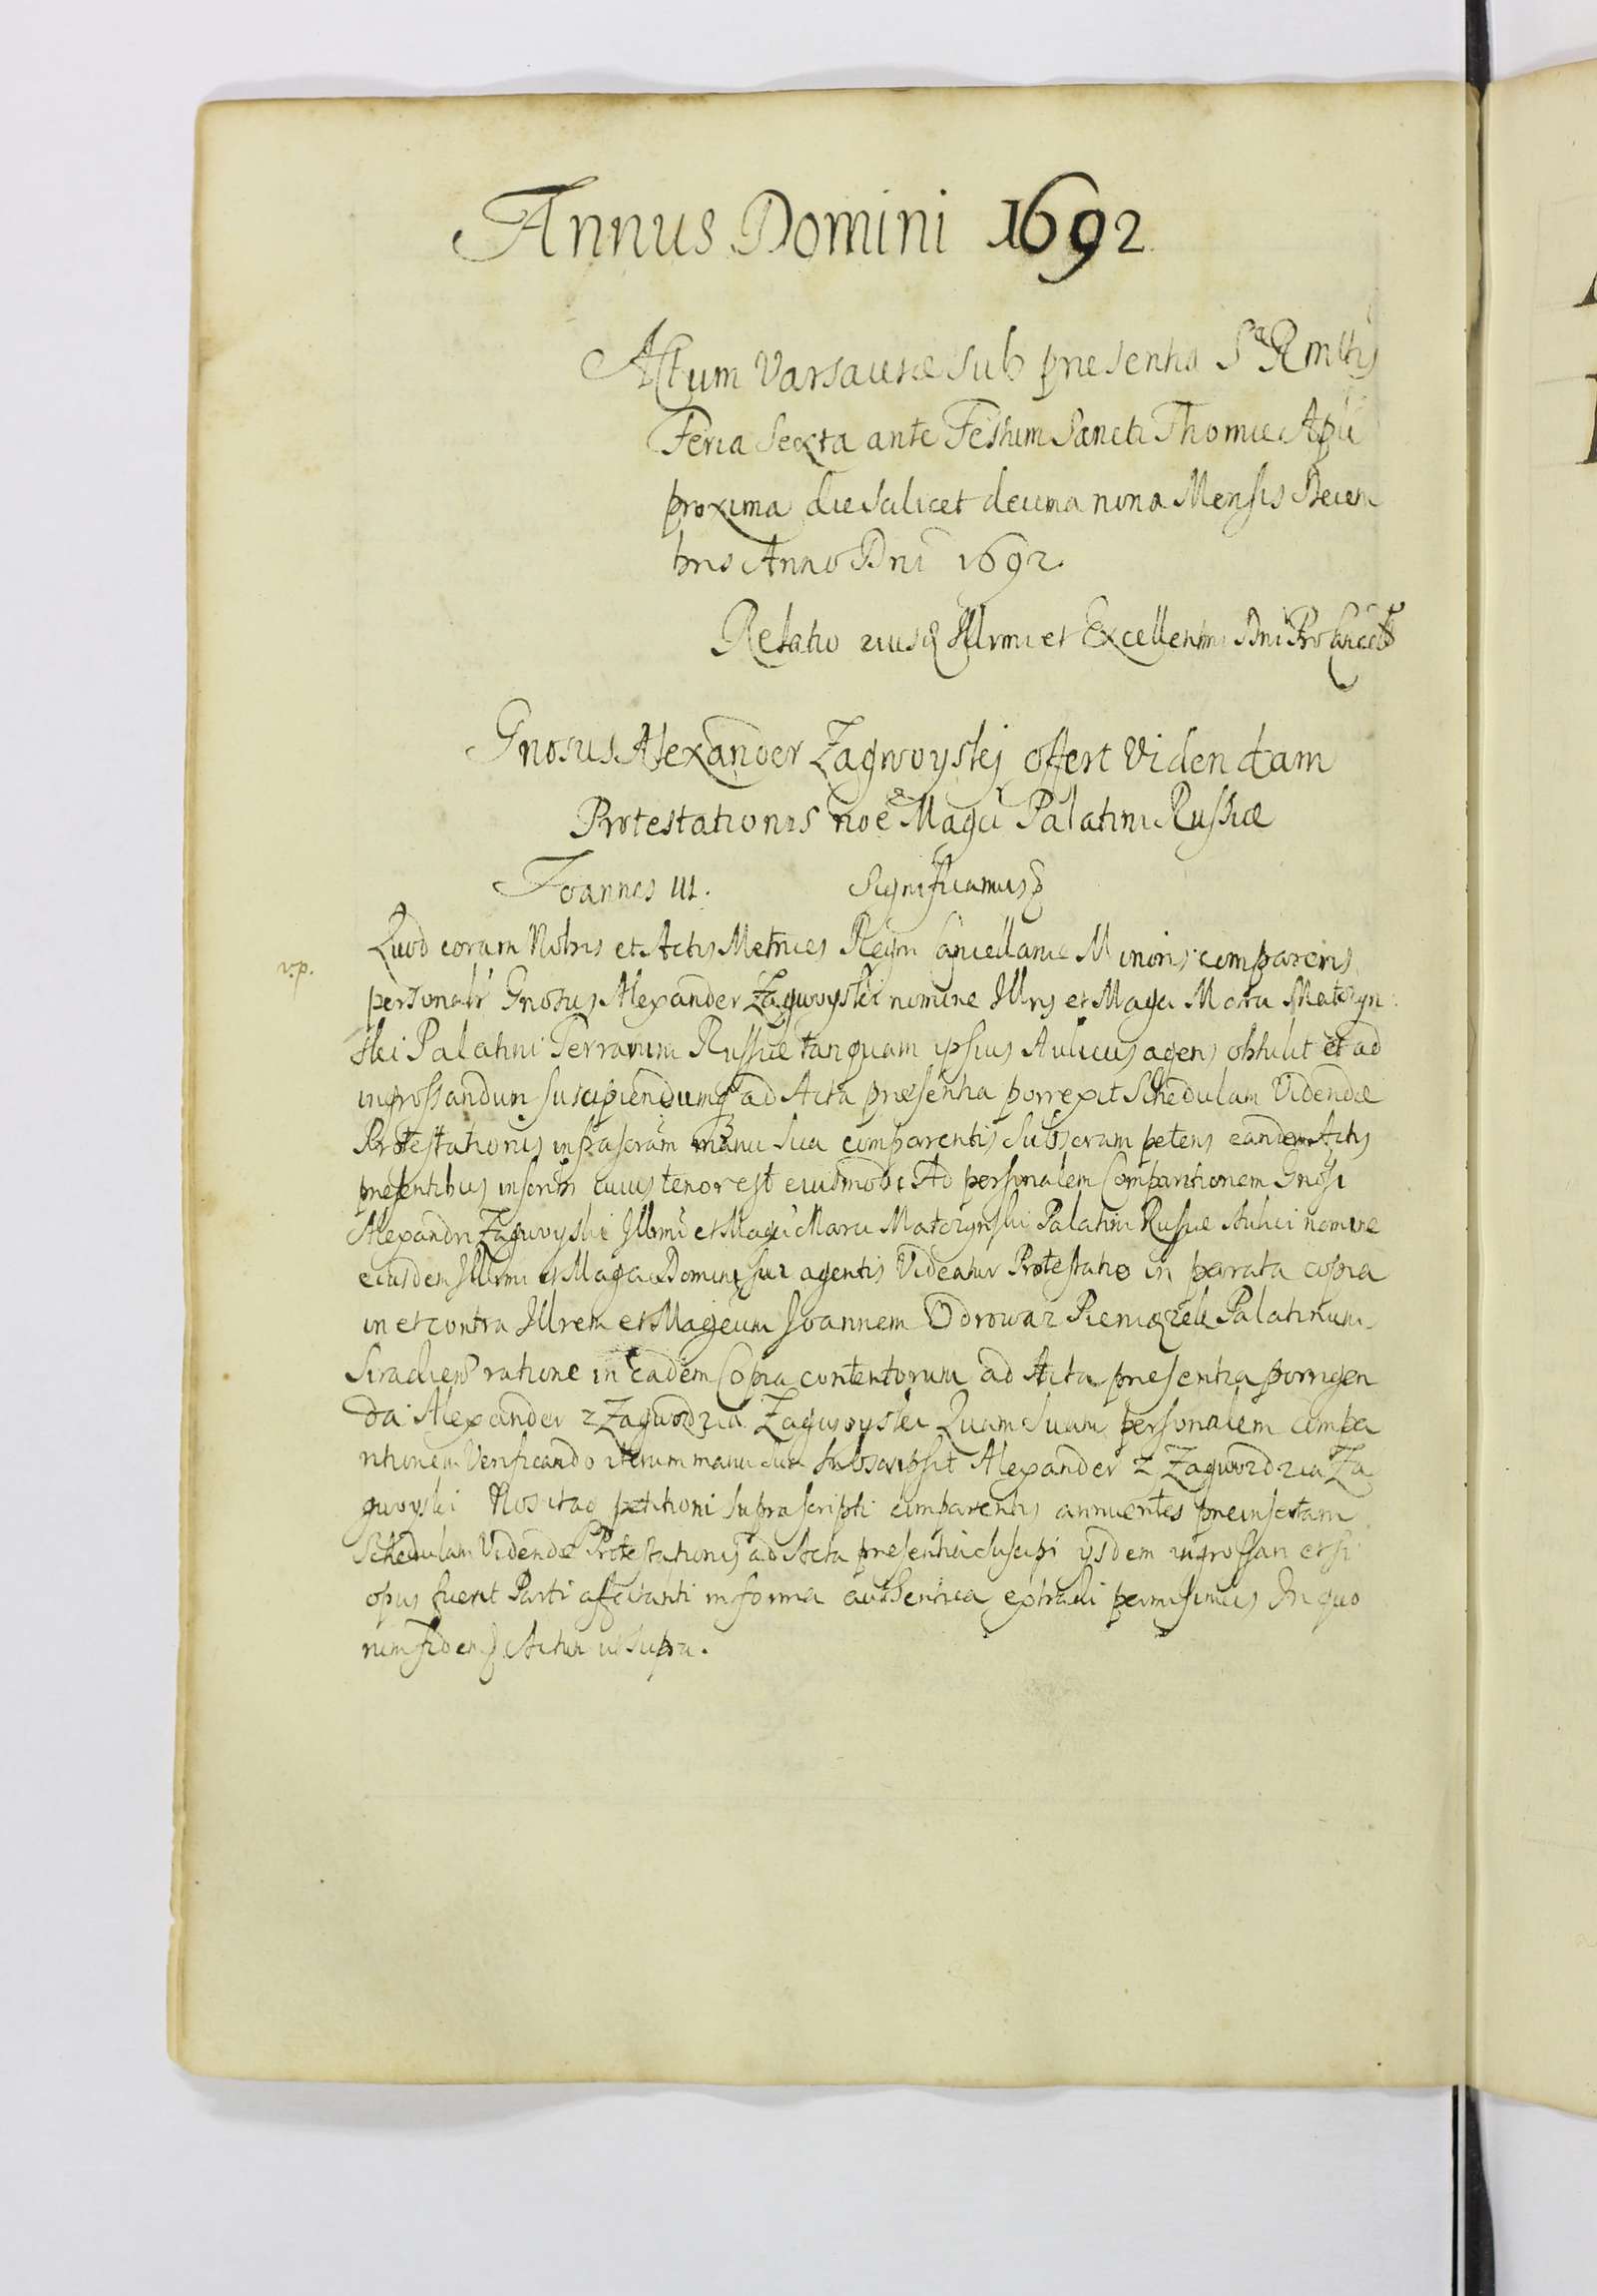 Annus Domini 1692
Actum Varsaviæ sub præsentia Sæ R Mttis
Feria Sexta ante Festum Sancti Thomæ Apli
proxima die scilicet decima nona Mensis Decem
bris Anno Dni 1692.
Relatio eiusq Illrmi et Excellentmi Dni
Gnosus Alexander Zagwoyskj offert Viden dam
Protestationis noe Magci Palatini Russiæ
Joannes III. Significamus
Quod coram Nobis et Actis Metrices Regni Cancellariæ Minoris comparens
v.p.
personalr Gnosus Alexander Zagwoyskii nomine Illris et Magci Marci Matczyn
skei Palatini Terrarum Russiæ tanquam ipsius Aulicus agens obtulit et ad
ingrossandum suscipiendumq ad Acta præsentia porrexit Schedulam Videndæ
Protestationis infrascram manu sua comparentis subscram petens eandem Actis
præsentibus inscribi cuius tenor est eiusmodi Ad personalem Comparitionem Gnosi
Alexandri Zagwoyski Illrmi et Magci Marci Matczynski Palatini Russiæ Aulici nomine
eiusdem Illrmi et Magci Domini sui agentis Videatur Protestatio in parata copia
in et contra Illrem et Magcum Joannem Odrowaz Pieniązek Palatinum
Siradien ratione in eadem Copia contentorum ad Acta præsentia porrigen
da Alexander z Zagwozdzia Zagwoyski Quam suam personalem compa
ritionem Verificando iterum manu sua subscripsit Alexander z Zagwozdzia Za
gwoyski Nos itaq petitioni suprascripti comparentis annuentes præinsertam
Schedulam Videndæ Protestationis ad Acta præsentia suscipi ijsdem ingrossari et si
opus fuerit Parti affectanti in forma authentica extradi permisimus In quo
rum fidem Actum ut supra.